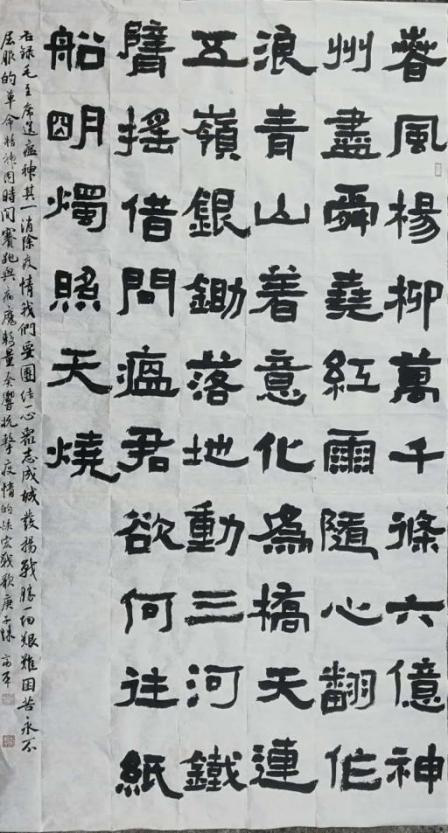 春風楊柳萬千條六億神
州盡舜堯紅雨隨心翻作
浪青山着意化為橋天連
五嶺銀鋤落地動三河鐵
臂搖借問瘟君欲何往紙
船明燭照天燒
右録毛主席送瘟神其一消除疫情我們要團结一心眾志成城發揚戰勝一切艱難困苦永不
屈服的革命精神同時間賽跑與病魔較量奏響抗擊疫情的宏戰歌庚子